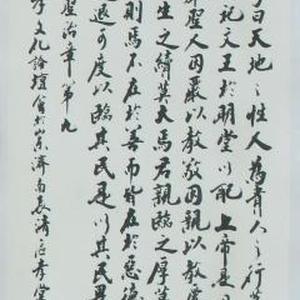 曰天地之性人為貴人之行莫
祀文王於明堂以配上帝是
聖人因嚴以教敬因親以教愛
生之績莫大焉君親臨之厚莫
則焉不在於善而皆在於惡德
退可度以臨其民是以其民畏
聖治章第九
文化論壇會於山東濟南長清區孝堂